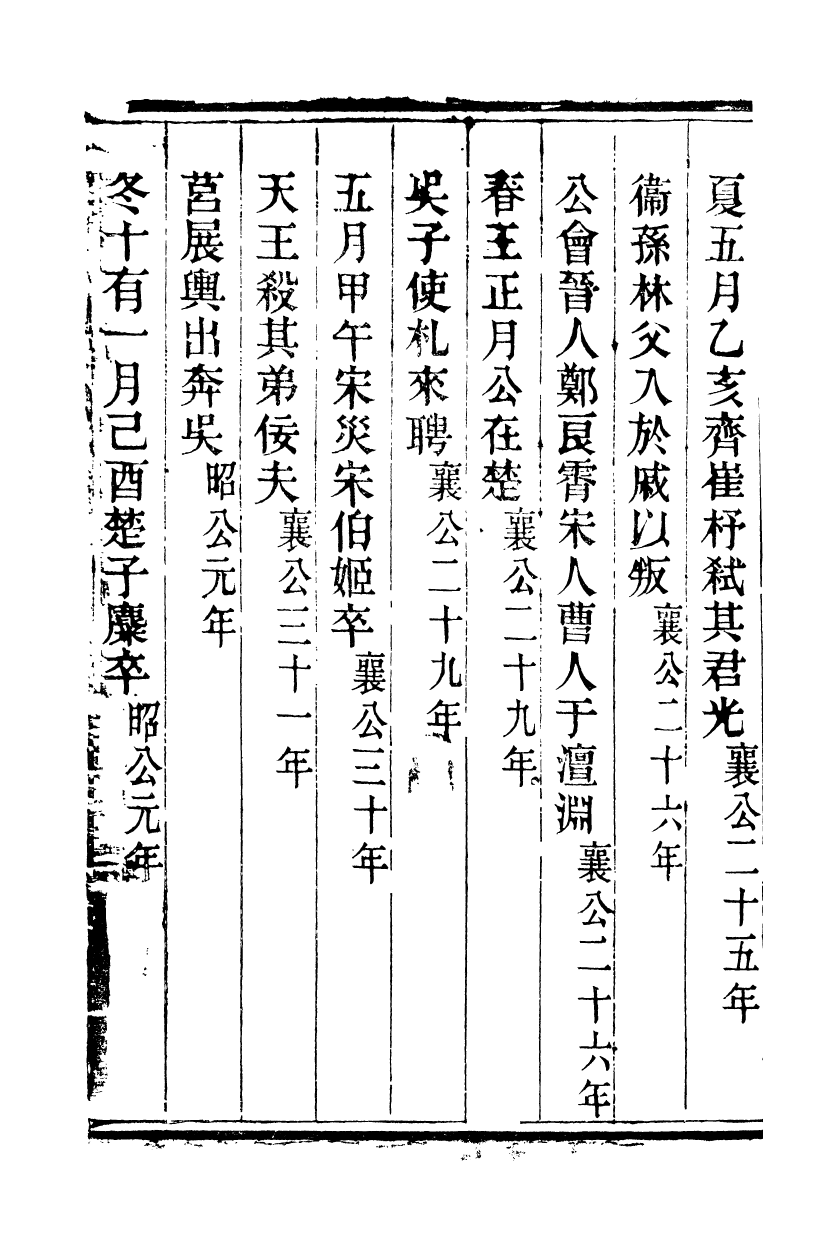 夏五月乙亥齊崔杼弑其君光襄公二十五年
衞孫林父入於戚以叛襄公二十六年
公會晉人鄭良霄宋人曹人于澶淵襄公二十六年
春王正月公在楚襄公二十九年
吳子使札來聘襄公二十九年
五月甲午宋災宋伯姬卒襄公三十年
天王殺其弟佞夫襄公三十一年
莒展輿出奔吳昭公元年
冬十有一月己酉楚子麇卒昭公元年